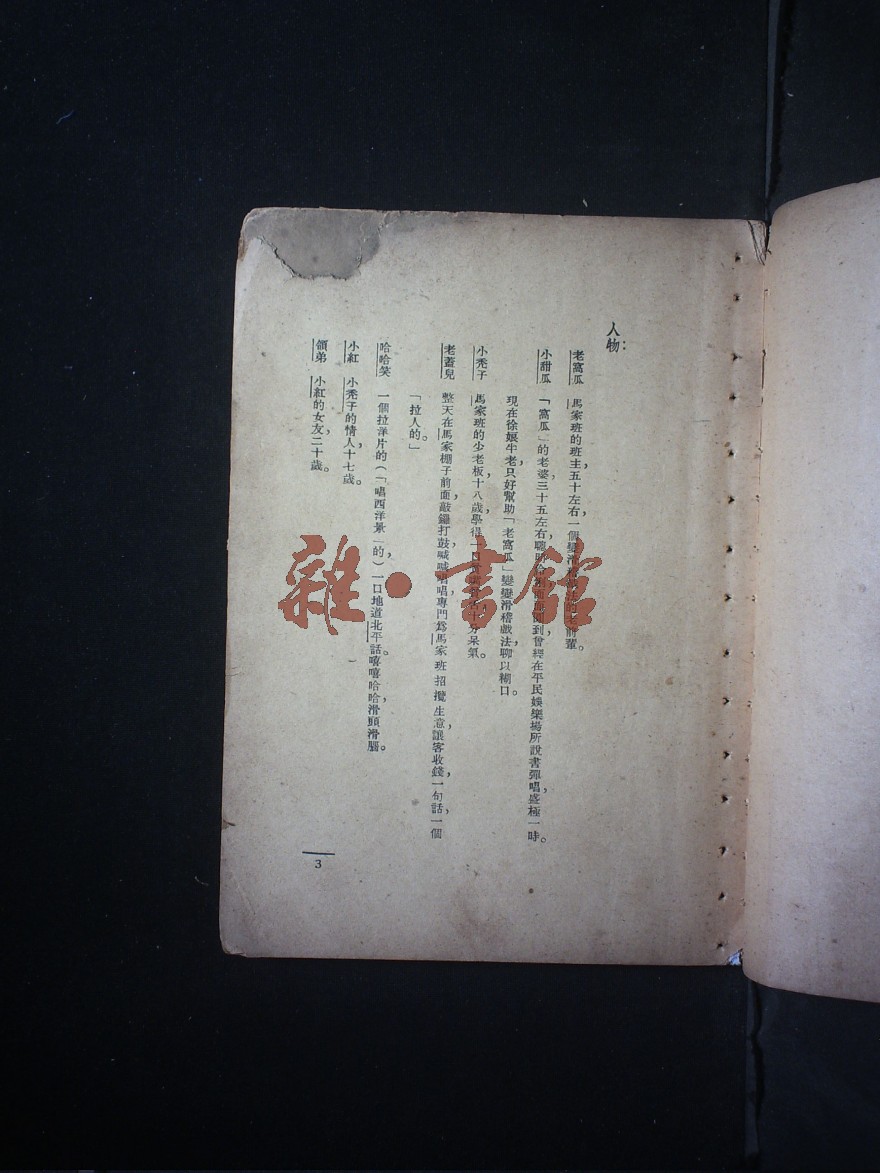 人物：
老窩瓜　馬家班的班主，五十左右，一個變滑稽戲法的老前輩。
小甜瓜　「窩瓜」的老婆，三十五左右，聰明到曾經在平民娛樂場所說書彈唱，盛極一時。
現在徐娘半老，只好幫助「老窩瓜」變變滑稽戲法，聊以糊口。
小禿子　馬家班的少老板，十八歲，學得一口十分呆氣。
老蓋兒　整天在馬家棚子前面敲鑼打鼓，喊喊唱唱，專門爲馬家班招攬生意，讓客收錢，一句話，一個
「拉人的。」
哈哈笑　一個拉洋片的（「唱西洋景」的），一口地道北平話。嘻嘻哈哈，滑頭滑腦。
小紅　小禿子的情人，十七歲。
領弟　小紅的女友，二十歲。
3
雜·書館